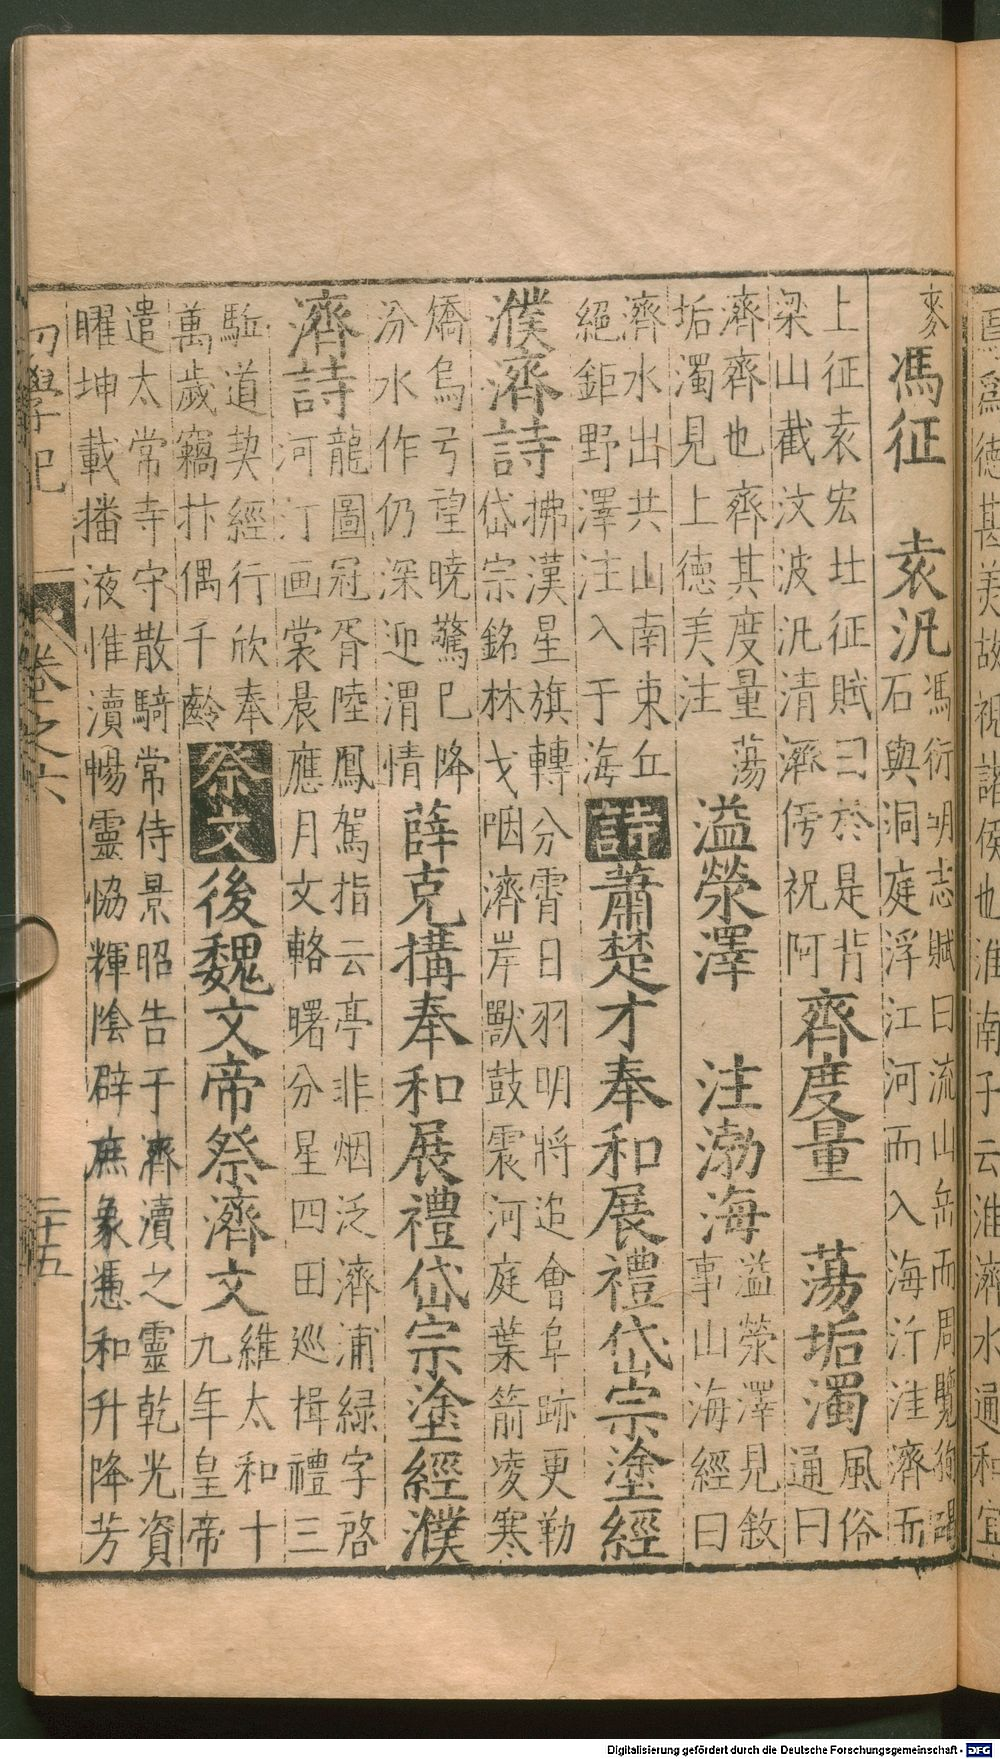 麥
馮征　袁汎
馮衍明志賦曰流山岳而周覽徇碣
石與洞庭浮江河而入海泝淮濟而
上征袁宏北征賦曰於是背
梁山截汶波汎清濟傍祝阿
齊度量　蕩垢濁
風俗
通曰
濟齊也齊其度量蕩
垢濁見上德美注
溢滎澤　注渤海
溢滎澤見敘
事山海經曰
濟水出共山南東丘
絕鉅野澤注入于海
詩
蕭楚才奉和展禮岱宗塗經
濮濟詩
拂漢星旗轉分霄日羽明將追會阜跡更勒
岱宗銘林戈咽濟岸獸鼓震河庭葉箭凌寒
矯烏弓望曉驚已降
汾水作仍深迎渭情
薛克搆奉和展禮岱宗塗經濮
濟詩
龍圖冠胥陸鳳駕指云亭非烟泛濟浦綠字啓
河汀画裳晨應月文輅曙分星四田巡揖禮三
駈道契經行欣奉
萬歲竊抃偶千齡
祭文
後魏文帝祭濟文
維太和十
九年皇帝
遣太常寺守散騎常侍景昭告于濟瀆之靈乾光資
曜坤載播液惟瀆暢靈協輝陰辟庶象憑和升降芳
初學記
卷之六
二十五
焉爲德甚美故視諸侯也淮南子云淮濟水通和宜
Digitalisierung gefördert durch die Deutsche Forschungsgemeinschaft - DFG